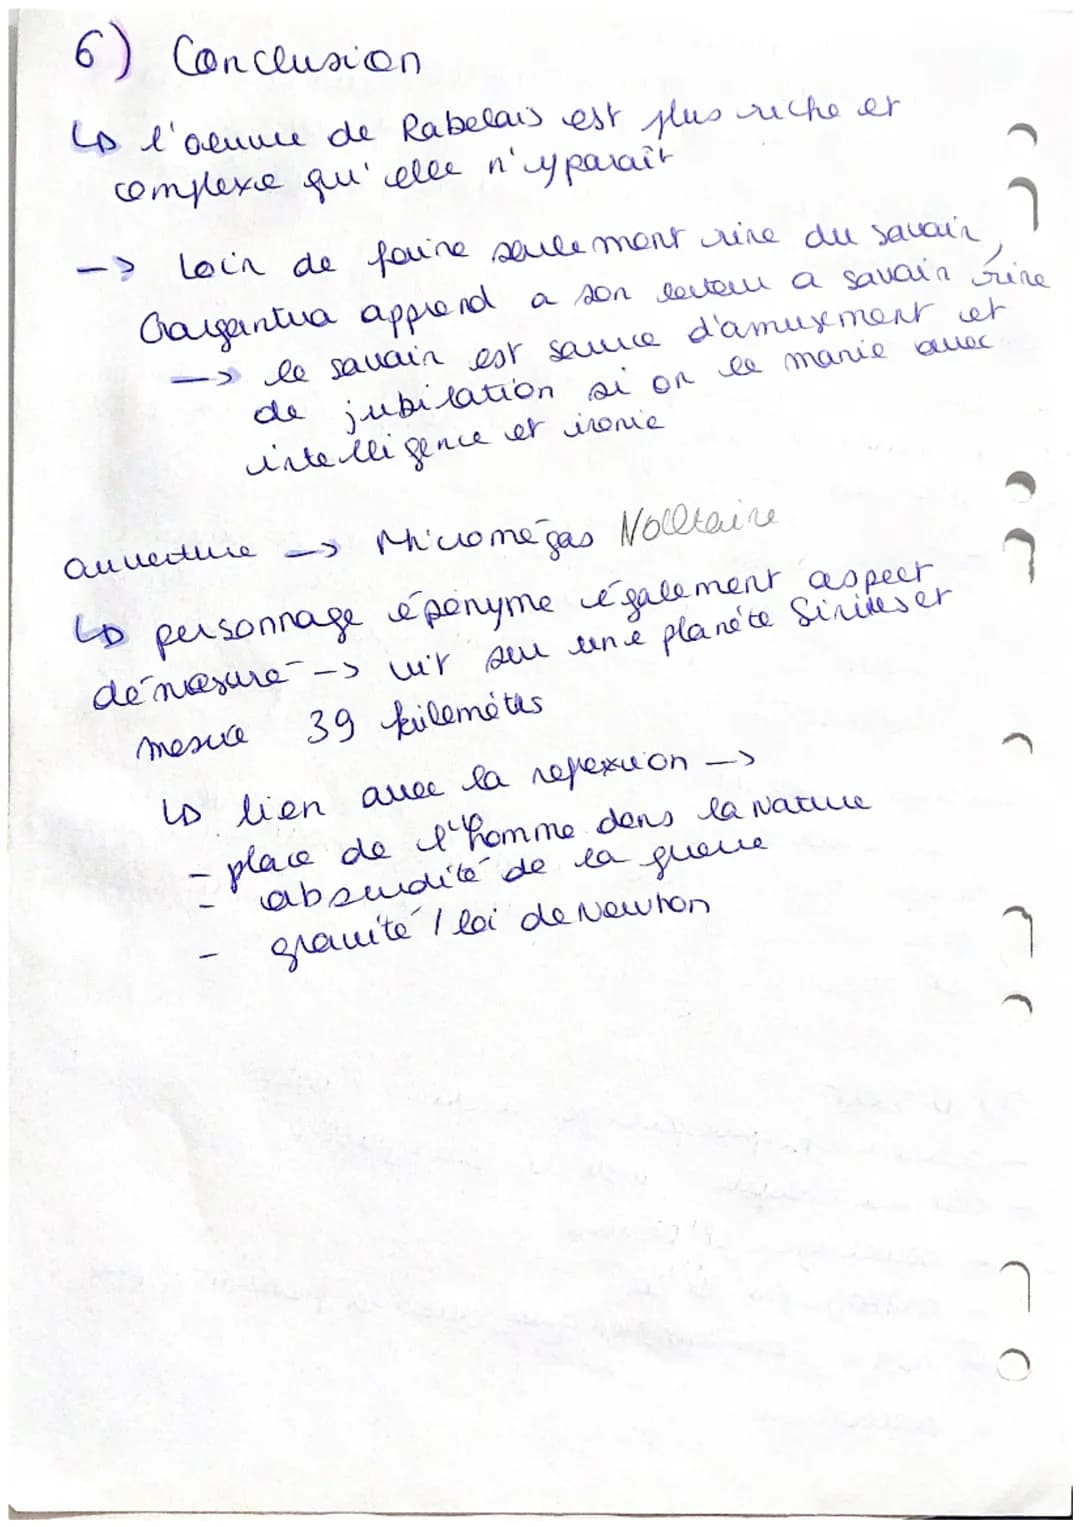 6) Conclusion
↳ l'œuvre de Rabelais est plus riche et
complexe qu'elle n'y parait
-> Loin de faire seulement rire du savoir,
Gargantua apprend a son lecteur a savoir rire
-> le savoir est source d'amusement et
de jubilation si on le manie avec
intelligence et ironie
ouverture -> Micromégas Volltaire
↳ personnage éponyme également aspect
démesuré -> vit sur une planéte Sirius et
mesure 39 kilométres
↳ lien avec la reflexion ->
- place de l'homme dans la Nature
- absurdité de la guerre
- gravité / loi de Newton